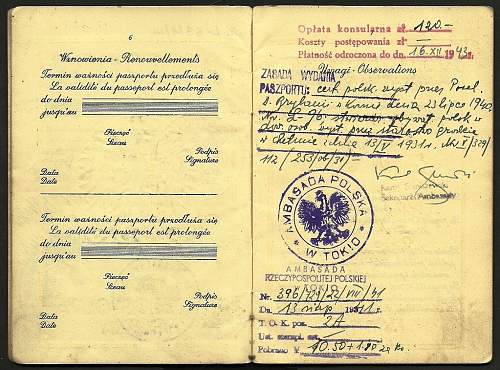 6
Wznowienia - Renouvellements
Termin ważności paszportu przedłuża się
La validité du passeport est prolongée
do dnia
jusqu'au
Pieczęć
Sceau
Podpis
Signature
Data
Date
Termin ważności paszportu przedłuża się
La validité du passeport est prolongée
do dnia
jusqu'au
Pieczęć
Sceau
Podpis
Signature
Data
Date
Opłata konsularna zł. 120.-
Koszty postępowania zł. —
Płatność odroczona do dn. 16.XII 1943 r.
Uwagi - Observations
ZASADA WYDANIA
PASZPORTU: cert. polsk. wyst. przez Posel.
lipca
polsk w
dow. osob. wyst. przez starostwo grodzkie
13/V 1931 r. Nr I/329/
112/253/06/31
Sekretarz Ambasady
AMBASADA POLSKA
W TOKIO
AMBASADA
RZECZYPOSPOLITEJ POLSKIEJ
W TOKIO
Nr. 396/729/22/VIII/41
Dn. 13 1941 r.
T. O. K. poz. 2A
Ust. stempl. szt.
Pobrano ¥ 10.50 + 1.00